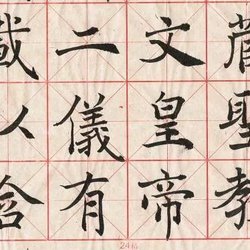 藏聖教
文皇帝
二儀有
載以含
24格